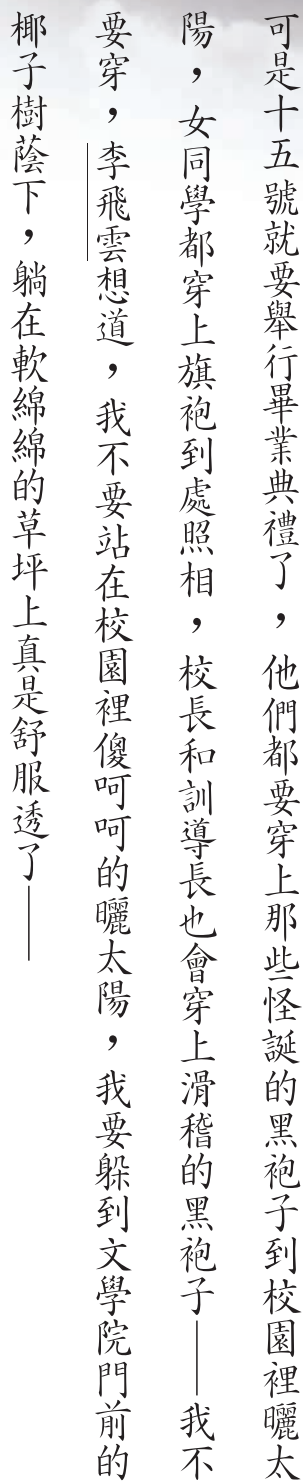 可是十五號就要舉行畢業典禮了，他們都要穿上那些怪誕的黑袍子到校園裡曬太
陽，女同學都穿上旗袍到處照相，校長和訓導長也會穿上滑稽的黑袍子——我不
要穿，李飛雲想道，我不要站在校園裡傻呵呵的曬太陽，我要躲到文學院門前的
椰子樹蔭下，躺在軟綿綿的草坪上真是舒服透了——